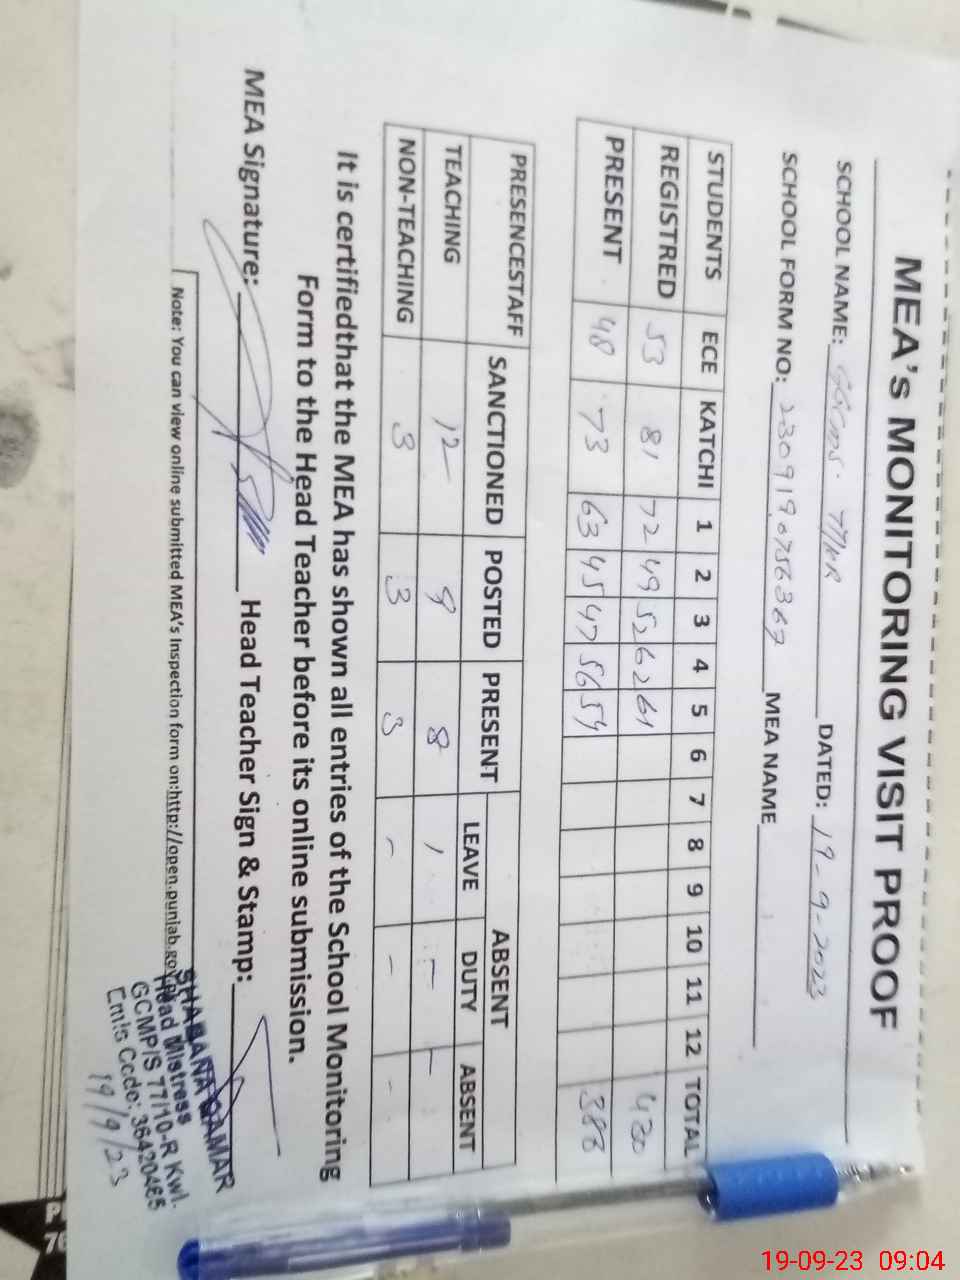 MEA's MONITORING VISIT PROOF
SCHOOL NAME: DATED: 19-9-2023
SCHOOL FORM NO: MEA NAME
STUDENTS ECE KATCHI 1 2 3 4 5 6 7 8 9 10 11 12 TOTAL
REGISTRED 53 81 72 49 52 62 61 430
PRESENT 48 73 63 45 47 56 383
PRESENCESTAFF SANCTIONED POSTED PRESENT ABSENT
LEAVE DUTY ABSENT
TEACHING 12 9 8 1 - -
NON-TEACHING 3 3 3 - - -
It is certifiedthat the MEA has shown all entries of the School Monitoring
Form to the Head Teacher before its online submission.
MEA Signature: Head Teacher Sign & Stamp:
SHABANA QAMAR
Head Mistress
GCMP/S 77/10-R Kwl.
Emis Code: 36420465
19/9/23
Note: You can view online submitted MEA's Inspection form on:http://open.punjab.gov.
19-09-23 09:04